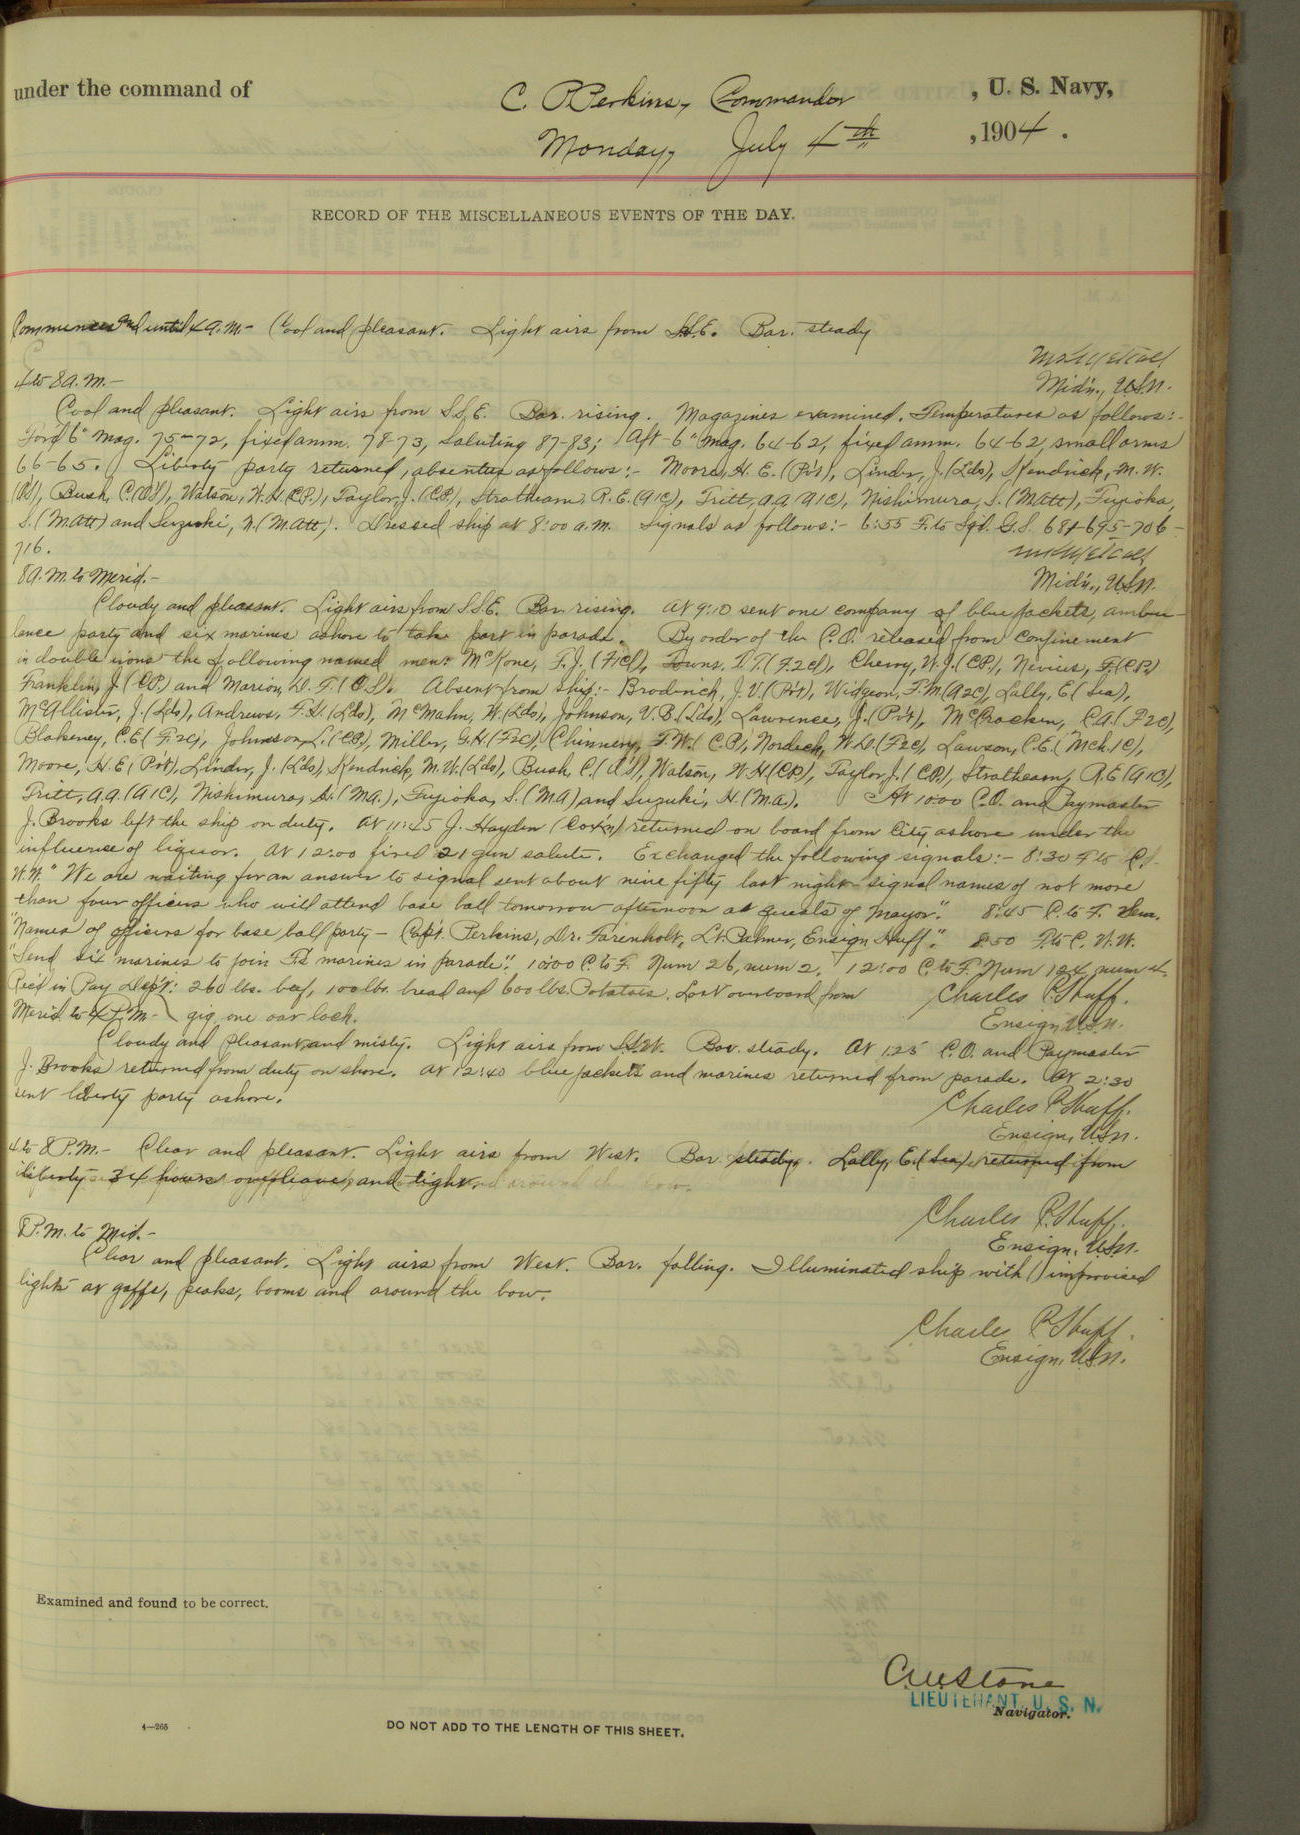 under the command of C. P. Perkins, Commander, U. S. Navy,
Monday, July 4th, 1904.
RECORD OF THE MISCELLANEOUS EVENTS OF THE DAY.
Commences and until 4 A.M.- Cool and pleasant. Light airs from S.S.E. Bar. steady
Mid'n., U.S.N.
4 to 8 A.M.-
Cool and pleasant. Light airs from S.S.E. Bar. rising. Magazines examined. Temperatures as follows:-
For'd 6" mag. 75-72, fixed amm. 78-73, Saluting 87-83; Aft 6" mag. 64-62, fixed amm. 64-62, small arms
66-65. Liberty party returned, absentees as follows:- Moore, H. E. (Pvt), Linder, J. (Lds), Kendrick, M. W.
(Lds), Bush, C. (OS), Watson, W. H. (C.P.), Taylor, J. (CP), Stratheam, R. E. (A1C), Tritt, A.A. (A1C), Nishimura, S. (MAtt), Fujioka,
S. (MAtt) and Suzuki, N. (M.Att). Dressed ship at 8:00 a.m. Signals as follows:- 6:55 F. to Sqd. G.S. 681-695-706-
716.
Mid'n., U.S.N.
8 A.M. to Merid.-
Cloudy and pleasant. Light airs from S.S.E. Bar. rising. At 9:10 sent one company of blue jackets, ambu-
lance party and six marines ashore to take part in parade. By order of the C.O. released from confinement
in double irons the following named men: McKone, F. J. (F1cl), Towns, D. T. (F.2cl), Cherry, W. J. (CP.), Nivius, F. (CP.)
Franklin, J. (CP.) and Marion, D. F. (O.S). Absent from ship:- Brodrick, J. V. (Pvt), Widgeon, F. M. (A2C), Lally, E. (Sea),
McAllister, J. (Lds), Andrews, F. H. (Lds), McMahn, W. (Lds), Johnson, V. B. (Lds), Lawrence, J. (Pvt), McCracken, C.A. (F2c),
Blakeney, C.E. (F2c), Johnson, L. (CP), Miller, G.H. (F2c), Chinnery, F. W. (C.P.), Nordeck, W. D. (F2c), Lawson, C.E. (Mch.1C),
Moore, H. E. (Pvt), Linder, J. (Lds), Kendrick, M. W. (Lds), Bush, C. (OS), Watson, W. H. (CP), Taylor, J. (CP.), Stratheam, R. E. (A1C),
Tritt, A.A. (A1C), Nishimura, S. (M.A.), Fujioka, S. (M.A) and Suzuki, N. (M.A.). At 10:00 C.O. and Paymaster
J. Brooks left the ship on duty. At 11:45 J. Hayden (Cox'n) returned on board from City ashore under the
influence of liquor. At 12:00 fired 21 gun salute. Exchanged the following signals:- 8:30 F to C.
W.W. "We are waiting for an answer to signal sent about nine fifty last night-signal names of not more
than four officers who will attend base ball tomorrow afternoon as guests of Mayor". 8:45 C. to F. Sem.
"Names of officers for base ball party - Capt. Perkins, Dr. Farenholt, Lt. Palmer, Ensign Huff". 8:50 F. to C. W.W.
"Send six marines to join F's marines in parade". 10:00 C. to F. Num 26, num 2. 12:00 C. to F. Num 124, num 4.
Rec'd in Pay Dep't: 260 lbs. beef, 100 lbs. bread and 600 lbs. Potatoes. Lost overboard from
gig one oar lock.
Charles P. Huff.
Ensign, U.S.N.
Merid. to 4 P.M.-
Cloudy and pleasant and misty. Light airs from S.S.W. Bar. steady. At 1:25 C.O. and Paymaster
J. Brooks returned from duty on shore. At 12:40 blue jackets and marines returned from parade. At 2:30
sent liberty party ashore.
Charles P. Huff.
Ensign, U.S.N.
4 to 8 P.M.- Clear and pleasant. Light airs from West. Bar. steady. Lally, E. (Sea) returned from
liberty 34 hours overleave, and tight.
Charles P. Huff.
Ensign, U.S.N.
8 P.M. to Mid.-
Clear and pleasant. Light airs from West. Bar. falling. Illuminated ship with improvised
lights at gaffs, peaks, booms and around the bow.
Charles P. Huff.
Ensign, U.S.N.
Examined and found to be correct.
C. M. Stone
LIEUTENANT, U. S. N.
Navigator.
4—265
DO NOT ADD TO THE LENGTH OF THIS SHEET.